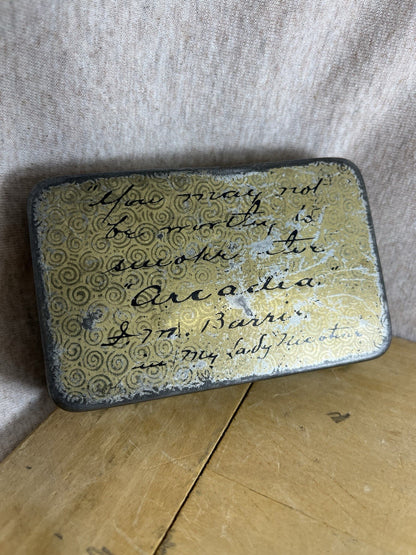 "You may not
be worthy to
smoke the
"Arcadia."
J. M. Barrie.
in My Lady Nicotine